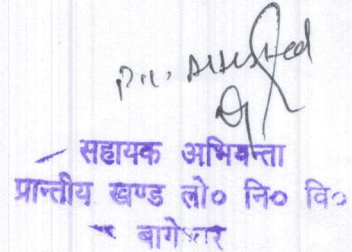 सहायक अभियन्ता
प्रान्तीय खण्ड लो० नि० वि०
बागेश्वर